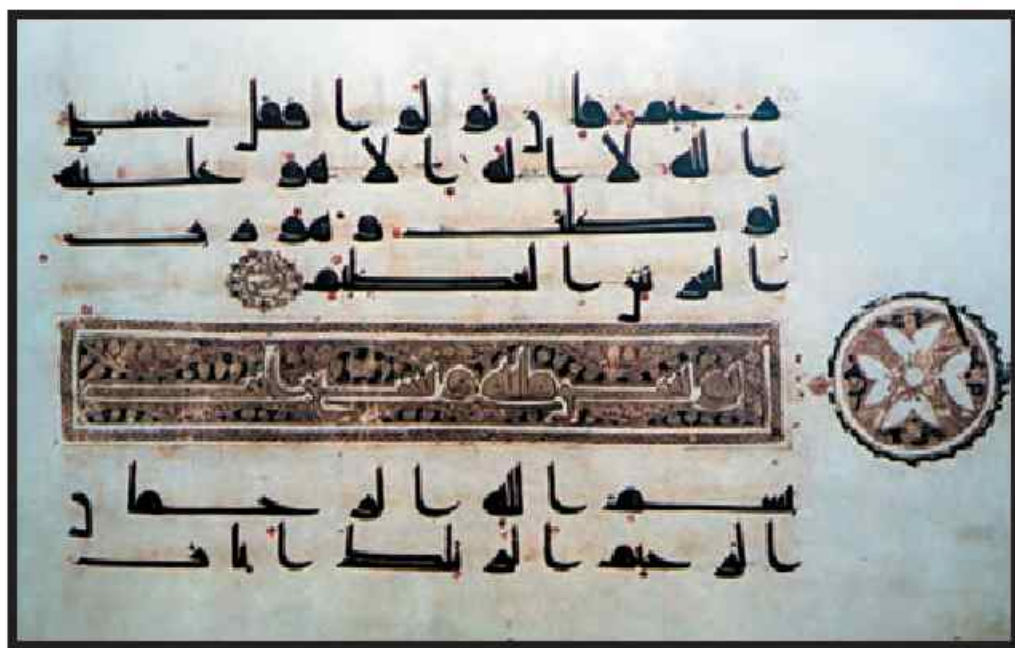 رحيم فان تولوا فقل حسبي
الله لا اله الا هو عليه
توكلت وهو رب
العرش العظيم
بسم الله الرحمن
الرحيم الر تلك ايت